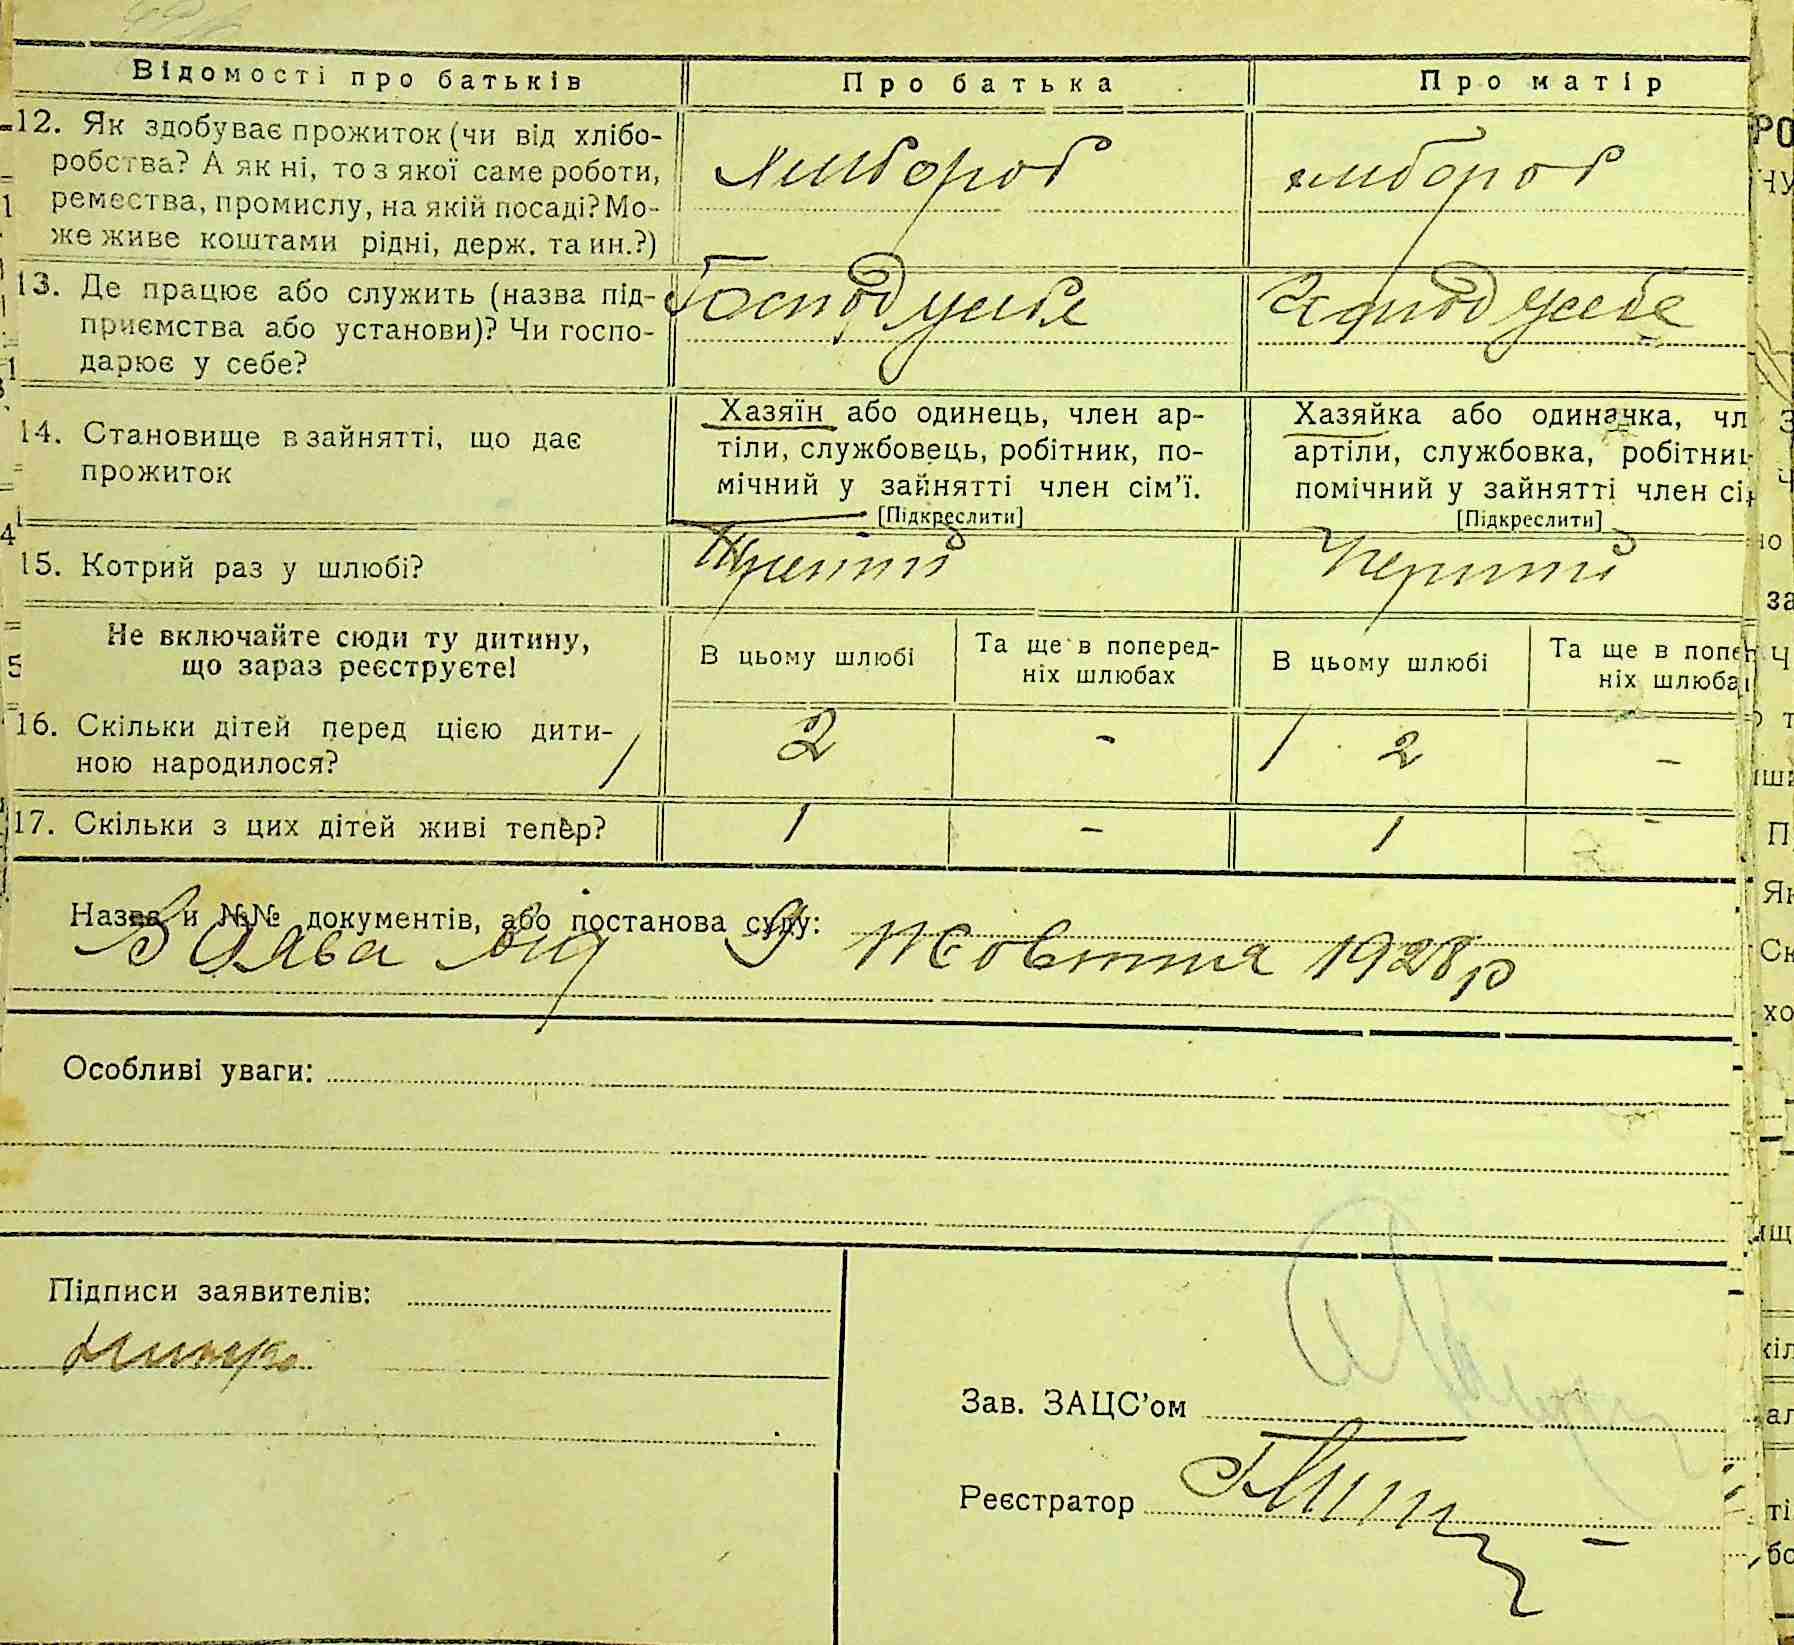 Відомості про батьків | Про батька | Про матір
12. Як здобуває прожиток (чи від хлібо-
робства? А як ні, то з якої саме роботи,
ремества, промислу, на якій посаді? Мо-
же живе коштами рідні, держ. та ин.?)
хлібороб | хлібороб
13. Де працює або служить (назва під-
приємства або установи)? Чи госпо-
дарює у себе?
Господ у себе | Господ у себе
14. Становище в зайнятті, що дає
прожиток
Хазяїн або одинець, член ар-
тіли, службовець, робітник, по-
мічний у зайнятті член сім'ї.
[Підкреслити]
Хазяйка або одиначка, чл
артіли, службовка, робітниц
помічний у зайнятті член сі
[Підкреслити]
15. Котрий раз у шлюбі? | Перший
Не включайте сюди ту дитину,
що зараз реєструєте!
В цьому шлюбі | Та ще в поперед-
ніх шлюбах | В цьому шлюбі | Та ще в попер
ніх шлюба
16. Скільки дітей перед цією дити-
ною народилося?
2 | - | 2 | -
17. Скільки з цих дітей живі тепер? | 1 | - | 1 | -
Назва и №№ документів, або постанова суду:
Заява від 9 Жовтня 1928 р
Особливі уваги:
Підписи заявителів:
Зав. ЗАЦС'ом
Реєстратор